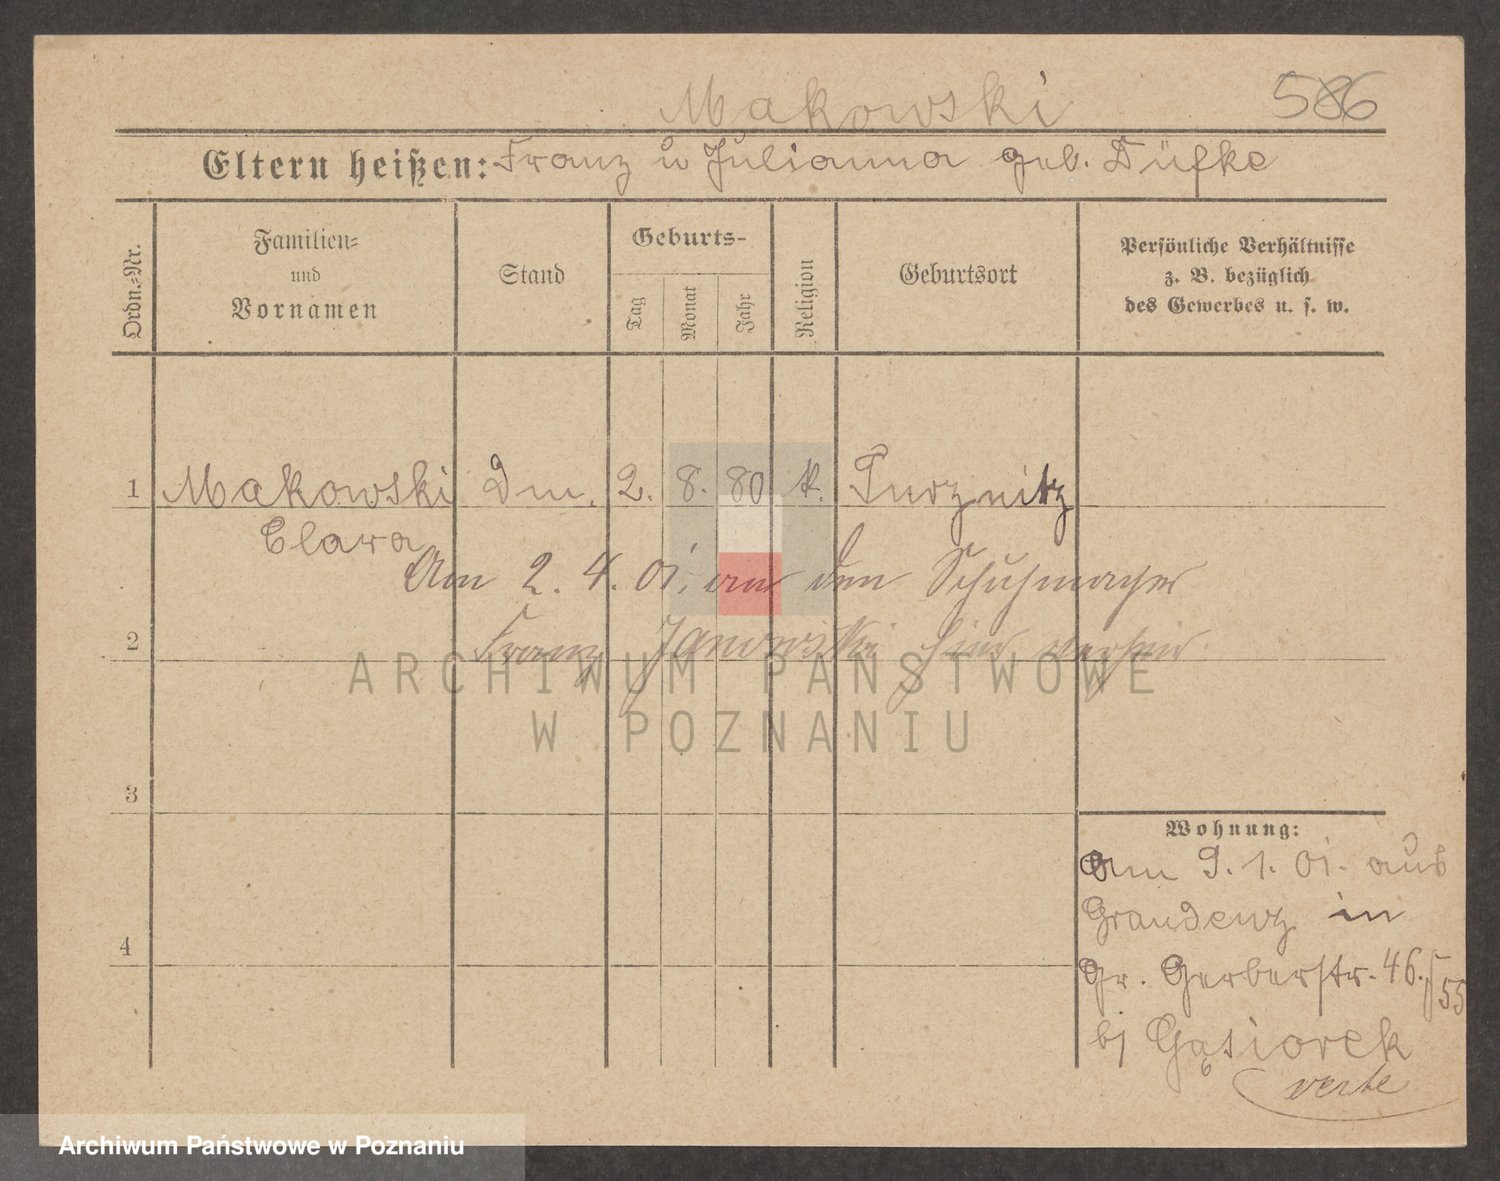 Makowski 586
Eltern heißen: Franz u Julianna geb. Düfke
Ordn.-Nr.
Familien-
und
Vornamen
Stand
Geburts-
Tag
Monat
Jahr
Religion
Geburtsort
Persönliche Verhältnisse
z. B. bezüglich
des Gewerbes u. s. w.
1 Makowski Dm. 2. 8. 80 k. Turznitz
Clara
Am 2. 4. 01. an den Schuhmacher
2
Franz Janowski hier verheir.
3
Wohnung:
Am 9. 1. 01. aus
Graudenz in
4
Gr. Gerberstr. 46. 55
bj Gąsiorek
verte
ARCHIWUM PAŃSTWOWE
W POZNANIU
Archiwum Państwowe w Poznaniu